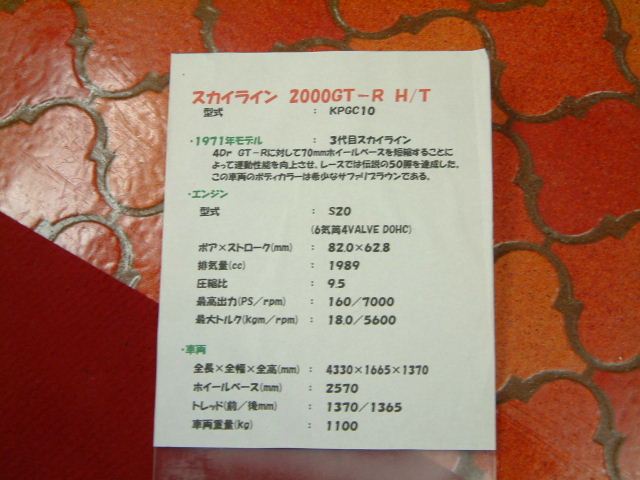 スカイライン 2000GT-R H/T
型式 : KPGC10
・1971年モデル : 3代目スカイライン
4Dr GT-Rに対して70mmホイールベースを短縮することに
よって運動性能を向上させ、レースでは伝説の50勝を達成した。
この車両のボディカラーは希少なサファリブラウンである。
・エンジン
型式 : S20
(6気筒4VALVE DOHC)
ボア×ストローク(mm) : 82.0×62.8
排気量(cc) : 1989
圧縮比 : 9.5
最高出力(PS/rpm) : 160/7000
最大トルク(Kgm/rpm) : 18.0/5600
・車両
全長×全幅×全高(mm) : 4330×1665×1370
ホイールベース(mm) : 2570
トレッド(前/後mm) : 1370/1365
車両重量(kg) : 1100